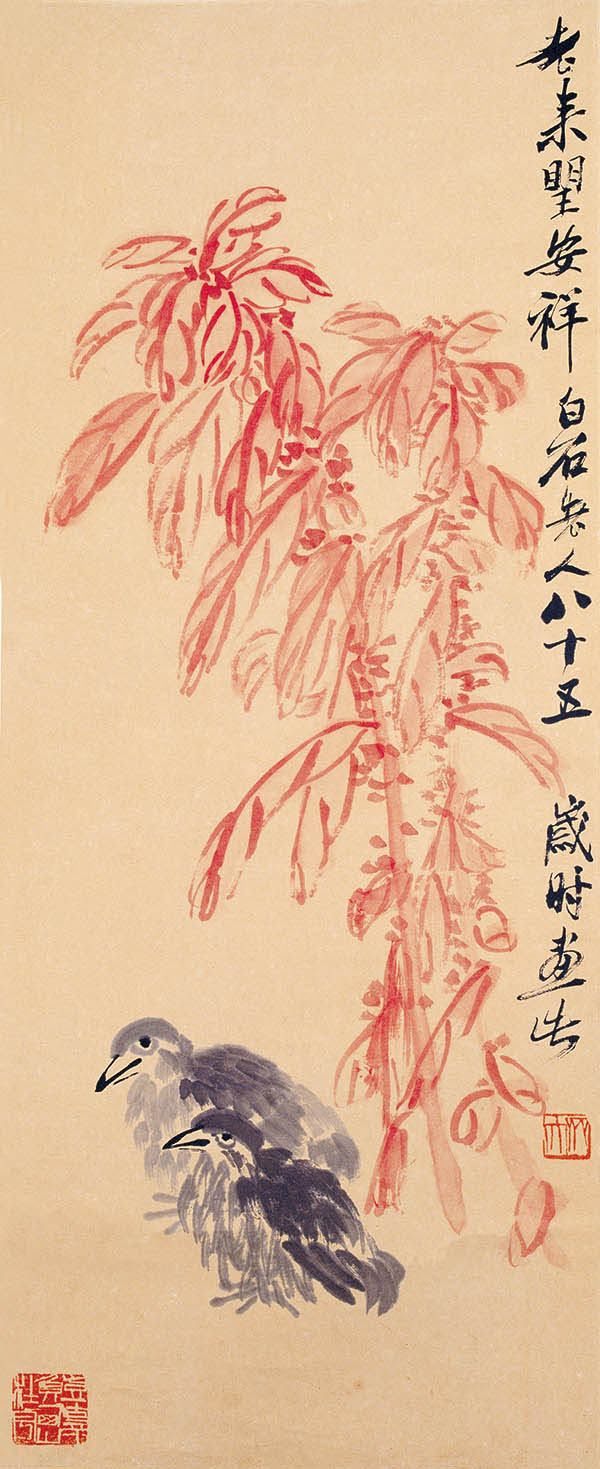 老来望安祥 白石老人八十五歲时画此